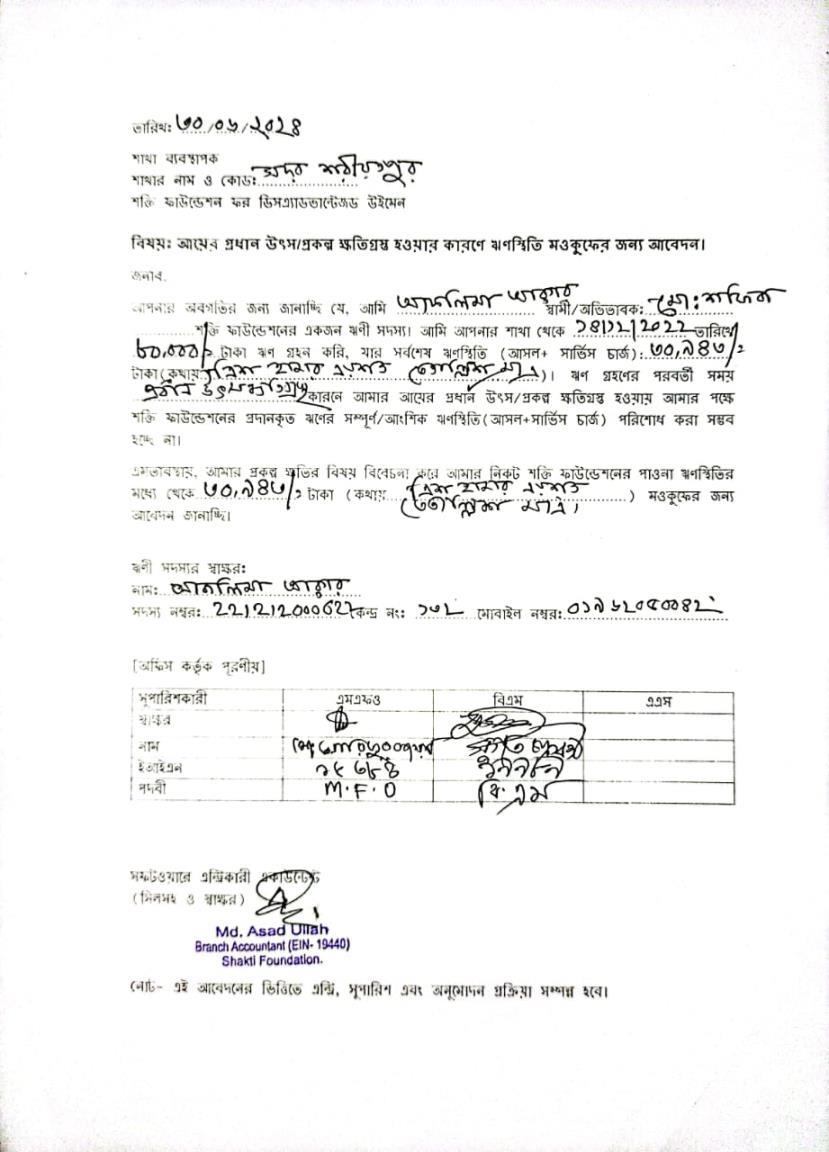 তারিখঃ ৩০/০৬/২০২৪
শাখা ব্যবস্থাপক
শাখার নাম ও কোডঃ সদর শরীয়তপুর
শক্তি ফাউন্ডেশন ফর ডিসএ্যাডভান্টেজড উইমেন
বিষয়ঃ আয়ের প্রধান উৎস/প্রকল্প ক্ষতিগ্রস্থ হওয়ার কারণে ঋণস্থিতি মওকুফের জন্য আবেদন।
জনাব,
আপনার অবগতির জন্য জানাচ্ছি যে, আমি তাসলিমা আক্তার স্বামী/অভিভাবক: মোঃ শফিক
শক্তি ফাউন্ডেশনের একজন ঋণী সদস্য। আমি আপনার শাখা থেকে ১৪/১২/২০২২ তারিখে
৮০,০০০/২ টাকা ঋণ গ্রহন করি, যার সর্বশেষ ঋণস্থিতি (আসল+ সার্ভিস চার্জ): ৩০,৯৪৩/২
টাকা (কথায় ত্রিশ হাজার নয়শত তেতাল্লিশ মাত্র)। ঋণ গ্রহণের পরবর্তী সময়
কারনে আমার আয়ের প্রধান উৎস/প্রকল্প ক্ষতিগ্রস্থ হওয়ায় আমার পক্ষে
শক্তি ফাউন্ডেশনের প্রদানকৃত ঋণের সম্পূর্ণ/আংশিক ঋণস্থিতি(আসল+সার্ভিস চার্জ) পরিশোধ করা সম্ভব
হচ্ছে না।
এমতাবস্থায়, আমার প্রকল্প ক্ষতির বিষয় বিবেচনা করে আমার নিকট শক্তি ফাউন্ডেশনের পাওনা ঋণস্থিতির
মধ্যে থেকে ৩০,৯৪৩/২ টাকা (কথায় ত্রিশ হাজার নয়শত তেতাল্লিশ মাত্র।) মওকুফের জন্য
আবেদন জানাচ্ছি।
ঋণী সদস্যের স্বাক্ষর:
নাম: তাসলিমা আক্তার
সদস্য নম্বর: 22121200062 কেন্দ্র নং: ১৩২ মোবাইল নম্বর:
[অফিস কর্তৃক পূরণীয়]
সুপারিশকারী এমএফও বিএম এএস
স্বাক্ষর
নাম
ইআইএন
পদবী M.F.O বি.এম
সফটওয়ারে এন্ট্রিকারী একাউন্টেন্ট
(সিলসহ ও স্বাক্ষর)
Md. Asad Ullah
Branch Accountant (EIN- 19440)
Shakti Foundation.
নোট- এই আবেদনের ভিত্তিতে এন্ট্রি, সুপারিশ এবং অনুমোদন প্রক্রিয়া সম্পন্ন হবে।